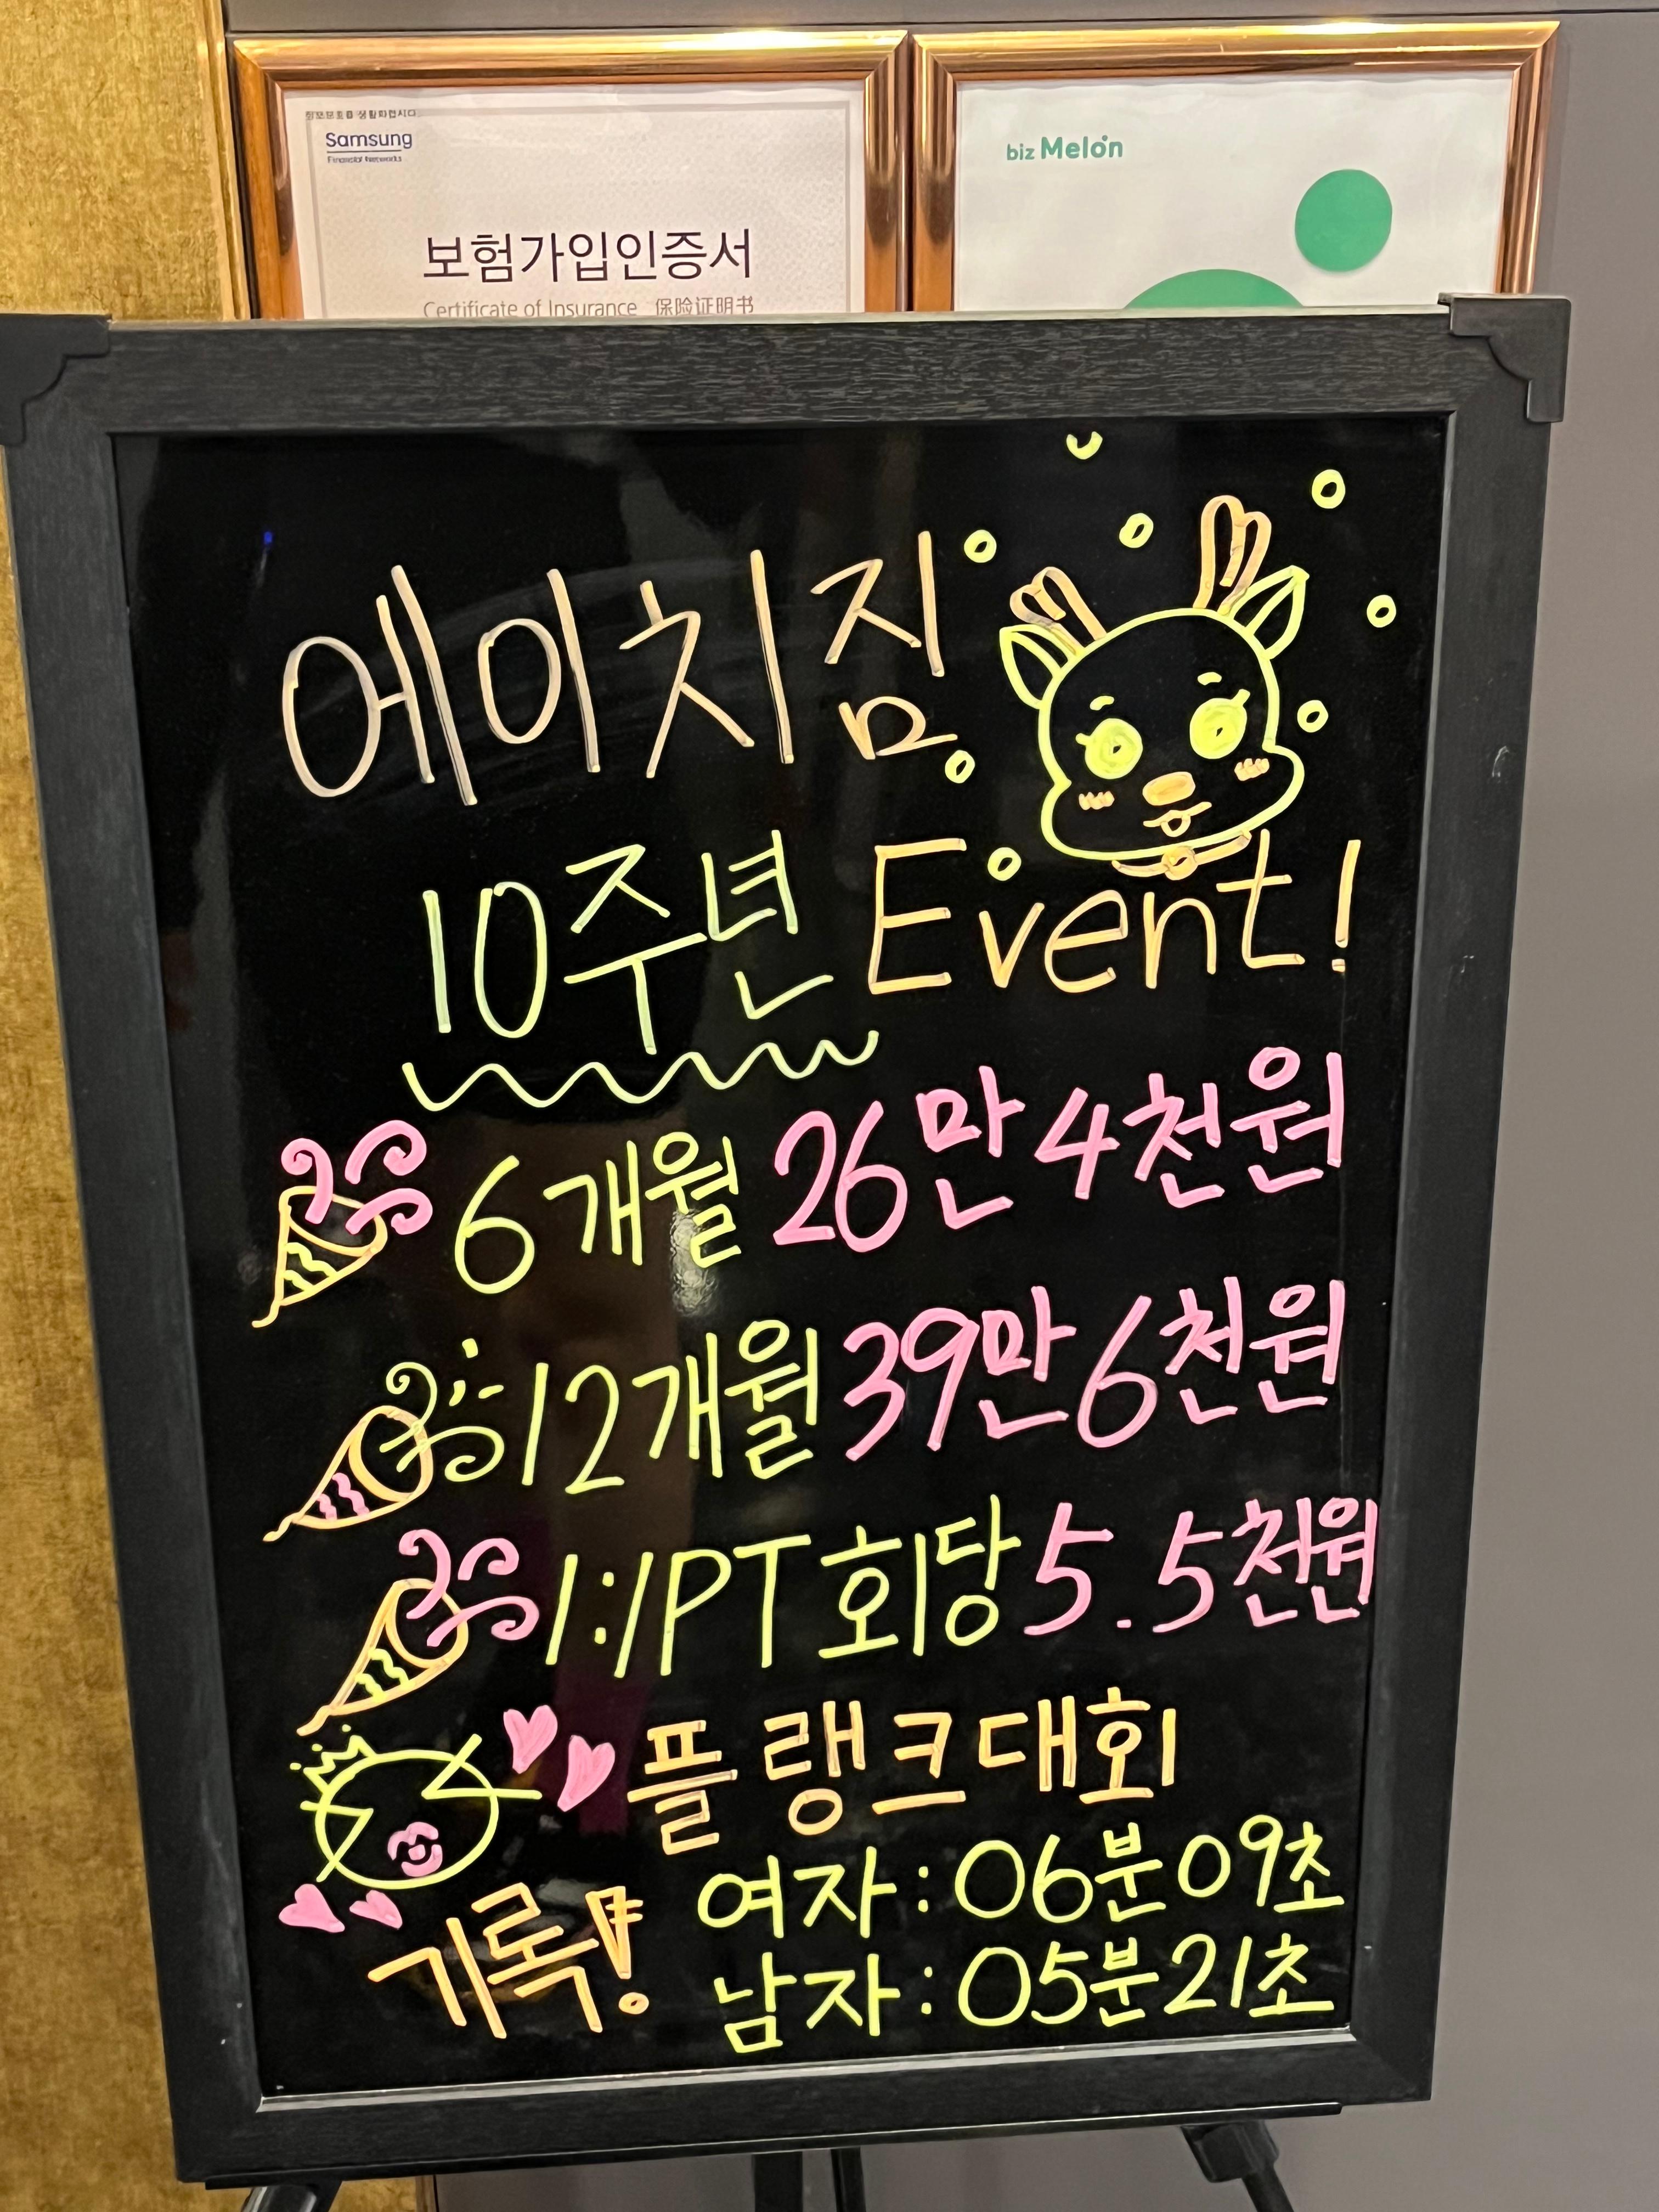 Samsung
Financial Networks
보험가입인증서
Certificate of Insurance 保险证明书
biz Melon
에이치짐
10주년 Event!
6개월 26만4천원
12개월 39만6천원
1:1PT 회당 5.5천원
플랭크대회
기록!
여자 : 06분09초
남자 : 05분21초